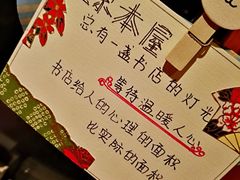 本屋
总有一盏书店的灯光
等待温暖人心
书店给人的心理的面积
比实际的面积